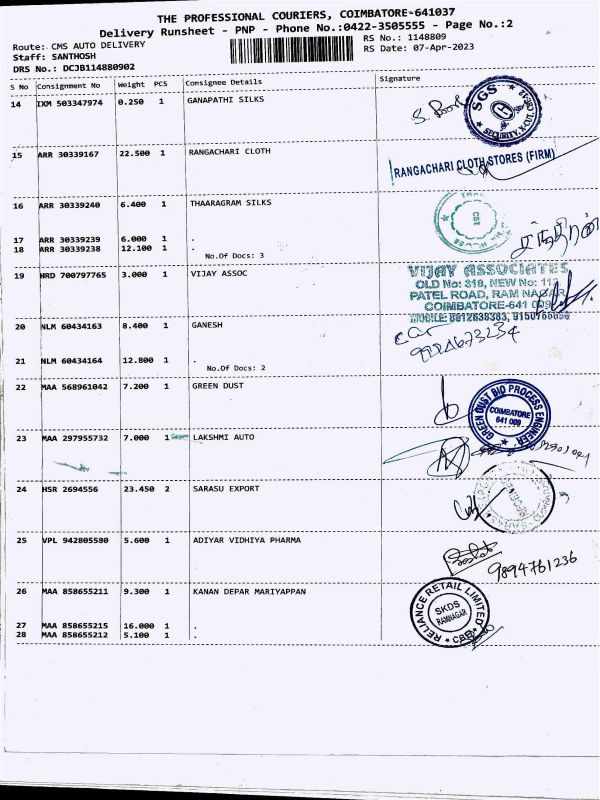 THE PROFESSIONAL COURIERS, COIMBATORE-641037
Delivery Runsheet - PNP - Phone No.:0422-3505555 - Page No.:2
Route: CMS AUTO DELIVERY
RS No.: 1148809
Staff: SANTHOSH
RS Date: 07-Apr-2023
DRS No.: DCJB114880902
S No Consignment No Weight PCS Consignee Details Signature
14 IXM 503347974 0.250 1 GANAPATHI SILKS
SGS
SECURITY
15 ARR 30339167 22.500 1 RANGACHARI CLOTH
RANGACHARI CLOTH STORES (FIRM)
16 ARR 30339240 6.400 1 THAARAGRAM SILKS
CBE
HOUSE
17 ARR 30339239 6.000 1 .
18 ARR 30339238 12.100 1 .
No.Of Docs: 3
19 HRD 700797765 3.000 1 VIJAY ASSOC
VIJAY ASSOCIATES
OLD No: 318, NEW No:
PATEL ROAD, RAM NAGAR
COIMBATORE-641 009
20 NLM 60434163 8.400 1 GANESH
21 NLM 60434164 12.800 1 .
No.Of Docs: 2
22 MAA 568961042 7.200 1 GREEN DUST
GREEN DUST BIO PROCESS ENGINEER
COIMBATORE
641 009
23 MAA 297955732 7.000 1 LAKSHMI AUTO
24 HSR 2694556 23.450 2 SARASU EXPORT
25 VPL 942805580 5.600 1 ADIYAR VIDHIYA PHARMA
9894761236
26 MAA 858655211 9.300 1 KANAN DEPAR MARIYAPPAN
RELIANCE RETAIL LIMITED
SKDS
RAMNAGAR
CBE
27 MAA 858655215 16.000 1 .
28 MAA 858655212 5.100 1 .